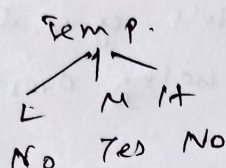 Temp.
L M H
No Yes No